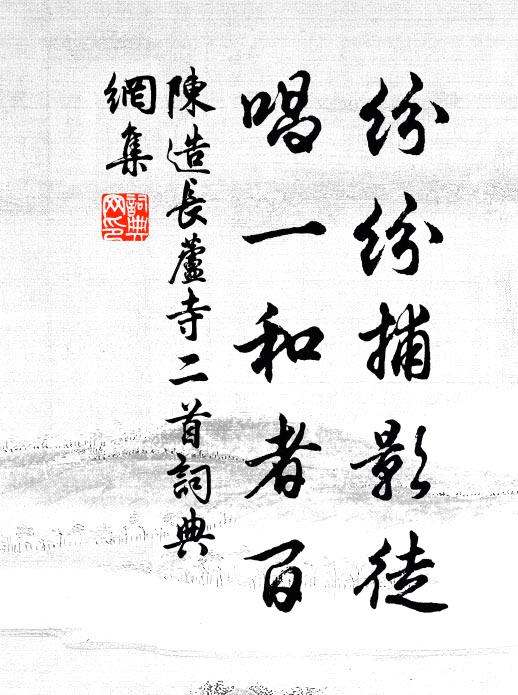 紛紛捕影徒
唱一和者百
陳造長蘆寺二首詞典
網集
詞典
网印